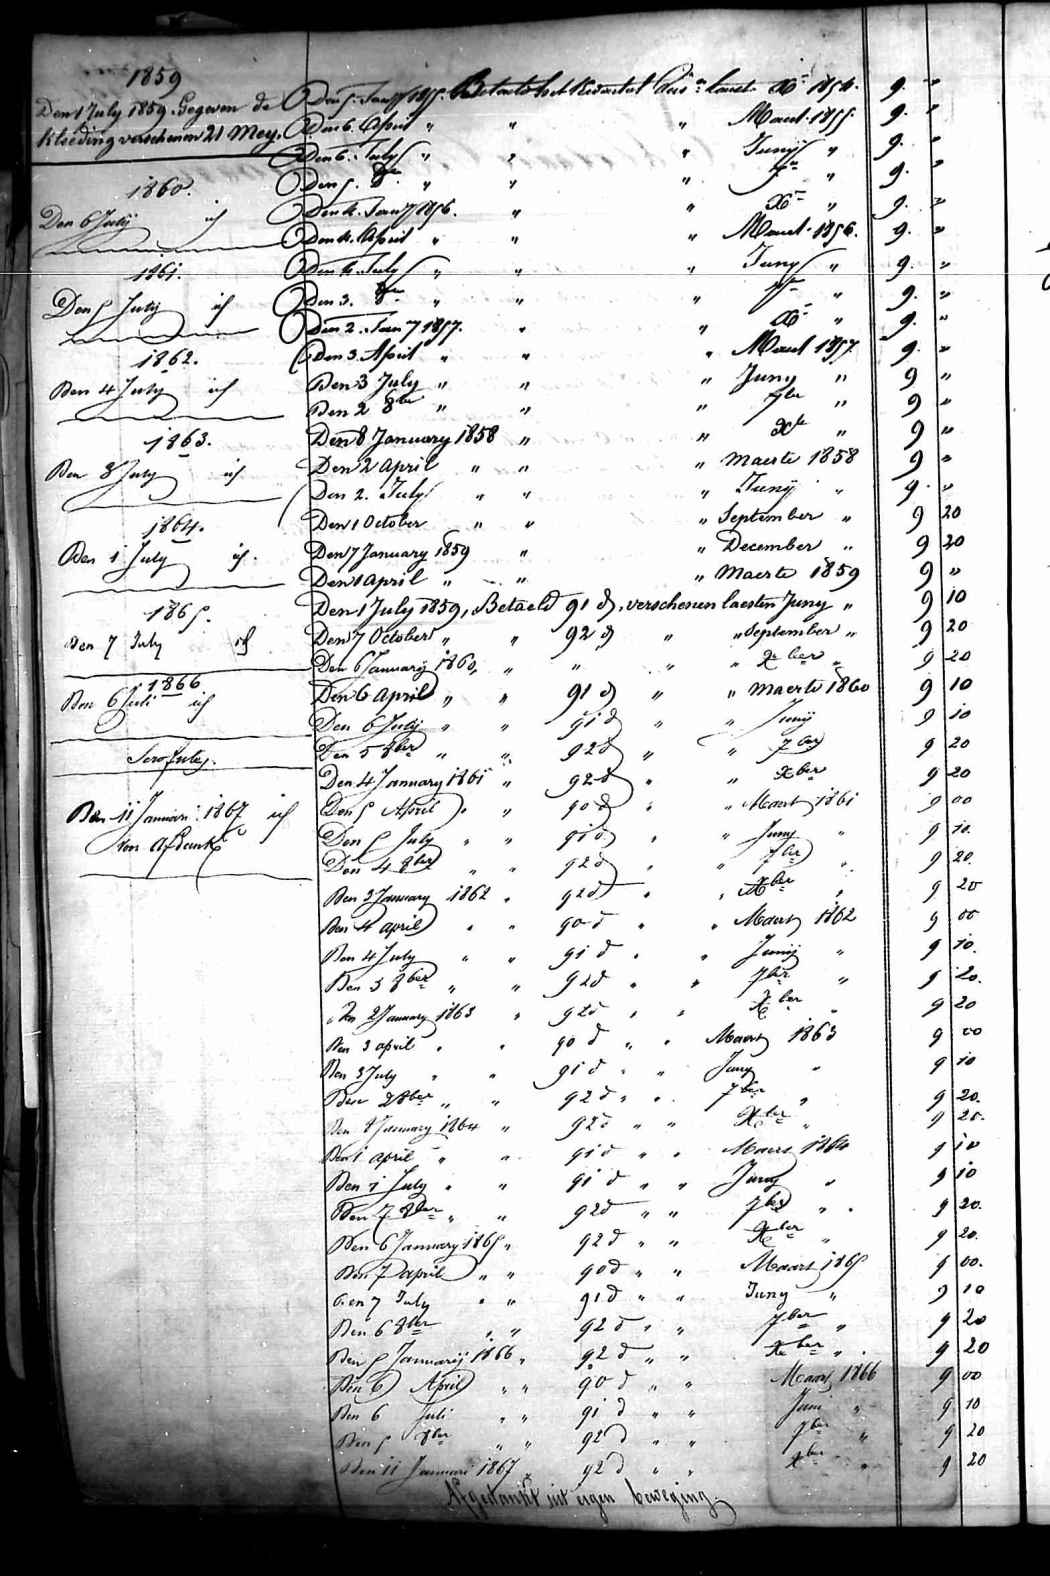 1859
Den 1 July 1859. Gegeven de
kleeding verschenen 21 Mey.
1860.
Den 6 Julij
1861.
Den 5 July
1862.
Den 4 July
1863.
Den 3 July
1864.
Den 1 July
1865.
Den 7 July
1866
Den 6 Juli
Den 11 Januari 1867
Den 5. Jan 1855. Betaald het Kwartal Xr 1854. 9. "
Den 6. April " " " Maert 1855. 9. "
Den 6. July " " " Junij " 9. "
Den 5. 8ber " " " 7ber " 9. "
Den 4. Jany 1856. " " Xr " 9. "
Den 4. April " " " Maert 1856. 9. "
Den 4. July " " " Juny " 9. "
Den 3. 8ber " " " 7ber " 9. "
Den 2. Jany 1857. " " Xr " 9. "
Den 3. April " " " Maert 1857 9. "
Den 3 July " " " Juny " 9 "
Den 2 8ber " " " 7ber " 9 "
Den 8 January 1858 " " Xr " 9 "
Den 2 April " " " Maerte 1858 9 "
Den 2. July " " " Junij " 9. "
Den 1 October " " " September " 9 20
Den 7 January 1859 " " December " 9 20
Den 1 April " " " Maerte 1859 9 "
Den 1 July 1859, Betaeld 91 d, verschenen laesten Juny " 9 10
Den 7 October " " 92 d " " September " 9 20
Den 6 Januarij 1860, " " " " Xber " 9 20
Den 6 April " " 91 d " " Maerte 1860 9 10
Den 6 Julij " " 91 d " " Junij 9 10
Den 5 8ber " " 92 d " " 7ber 9 20
Den 4 January 1861 " 92 d " " Xber 9 20
Den 5 April " " 90 d " " Maert 1861 9 00
Den 5 July " " 91 d " " Juny " 9 10.
Den 4 8ber " " 92 d " " 7ber " 9 20.
Den 3 January 1862 " 92 d " " Xber " 9 20
Den 4 april " " 90 d " " Maert 1862 9 00
Den 4 July " " 91 d " " Junij " 9 10.
Den 3 8ber " " 92 d " " 7ber " 9 20.
Den 2 January 1863 " 92 d " " Xber " 9 20
Den 3 april " " 90 d " " Maert 1863 9 00
Den 3 July " " 91 d " " Juny " 9 10
Den 2 8ber " " 92 d " " 7ber " 9 20.
Den 8 January 1864 " 92 d " " Xber " 9 20.
Den 1 april " " 91 d " " Maert 1864 9 10
Den 1 July " " 91 d " " Juny " 9 10
Den 7 8ber " " 92 d " " 7ber " 9 20.
Den 6 January 1865 " 92 d " " Xber " 9 20.
Den 7 april " " 90 d " " Maart 1865 9 00.
Den 7 July " " 91 d " " Juny " 9 10
Den 6 8ber " " 92 d " " 7ber " 9 20
Den 5 Januarij 1866 " 92 d " " Xber " 9 20
Den 6 April " " 90 d " " Maart 1866 9 00
Den 6 Juli " " 91 d " " Juni " 9 10
Den 5 8ber " " 92 d " " 7ber " 9 20
Den 11 Januari 1867 " 92 d " " Xber " 9 20
Afgedankt uit eigen beweging.